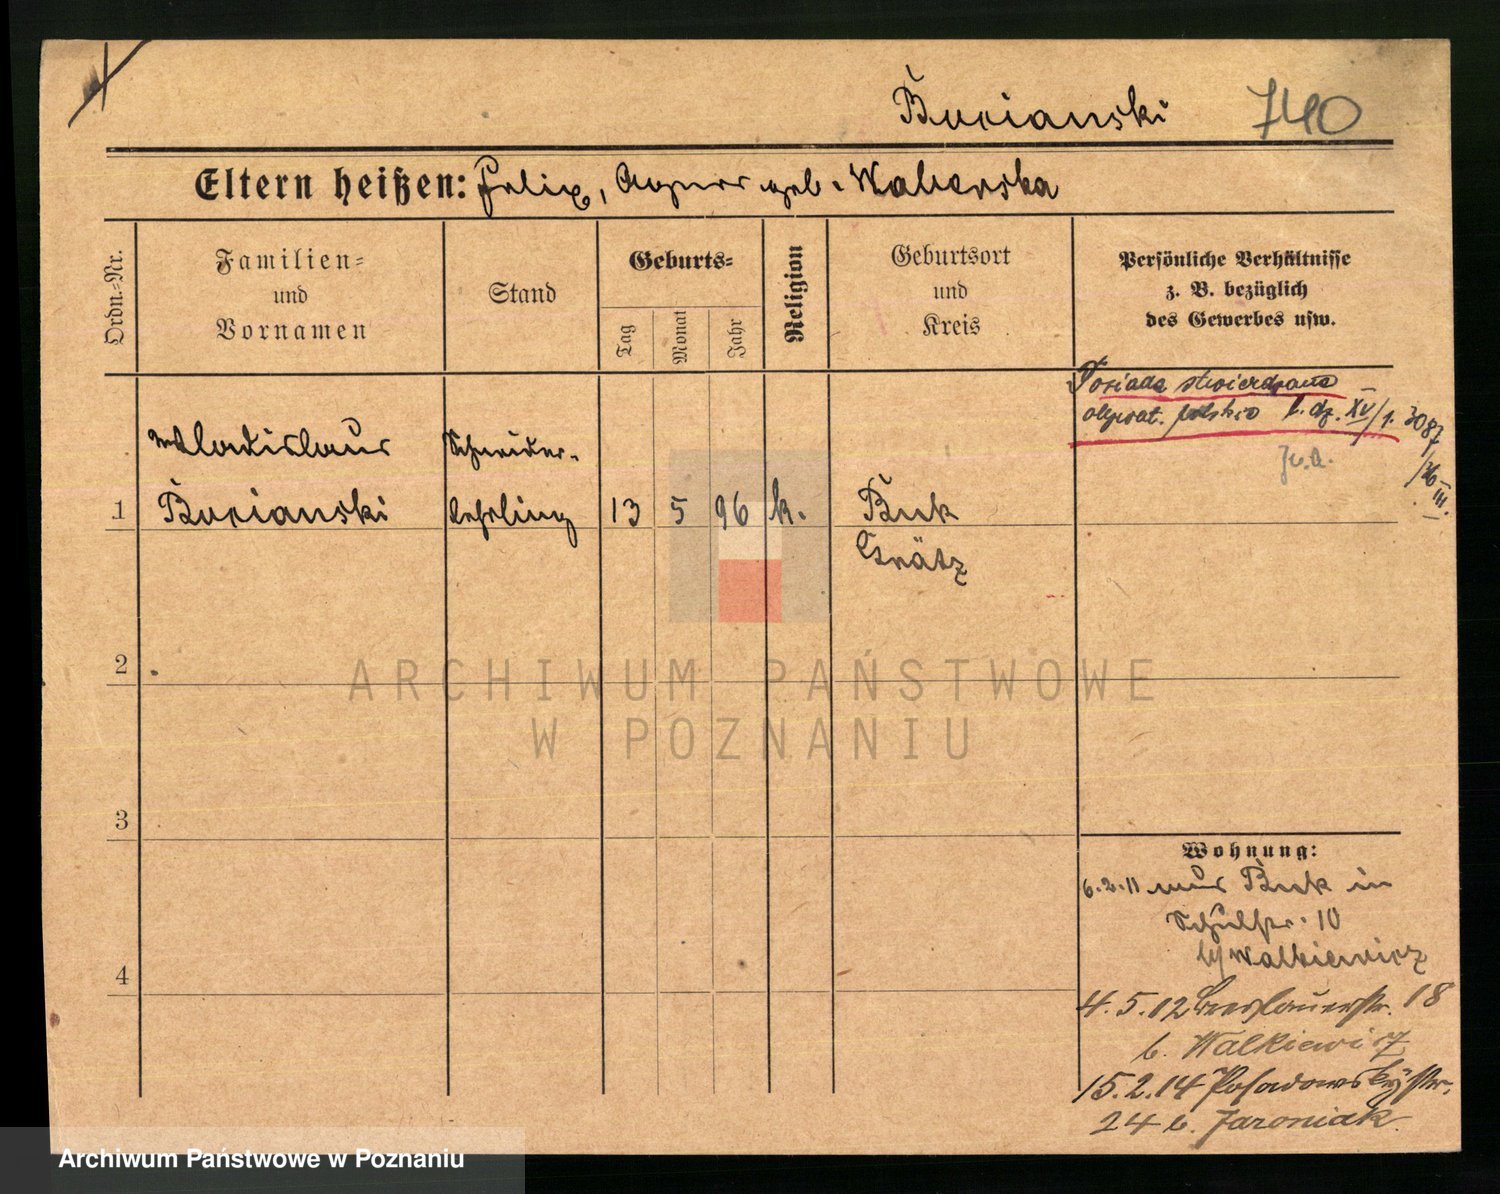 Bucianski 740
Eltern heißen: Felix, Agnes geb. Walenska
Ordn.-Nr.
Familien-
und
Vornamen
Stand
Geburts-
Tag
Monat
Jahr
Religion
Geburtsort
und
Kreis
Persönliche Verhältnisse
z. B. bezüglich
des Gewerbes usw.
Posiada stwierdzone
obywat. polskie l. dz. XV/1. 3087
/26
III.
Wladislaus
1 Bucianski
Schneider-
lehrling
13 5 96 k.
Buk
Grätz
2
3
4
Wohnung:
6.2.11 aus Buk in
Schulstr. 10
b/ Walkiewicz
4.5.12 Breslauerstr. 18
b. Walkiewicz
15.2.14 Posadowskystr.
24 b. Jaroniak
ARCHIWUM PAŃSTWOWE
W POZNANIU
Archiwum Państwowe w Poznaniu